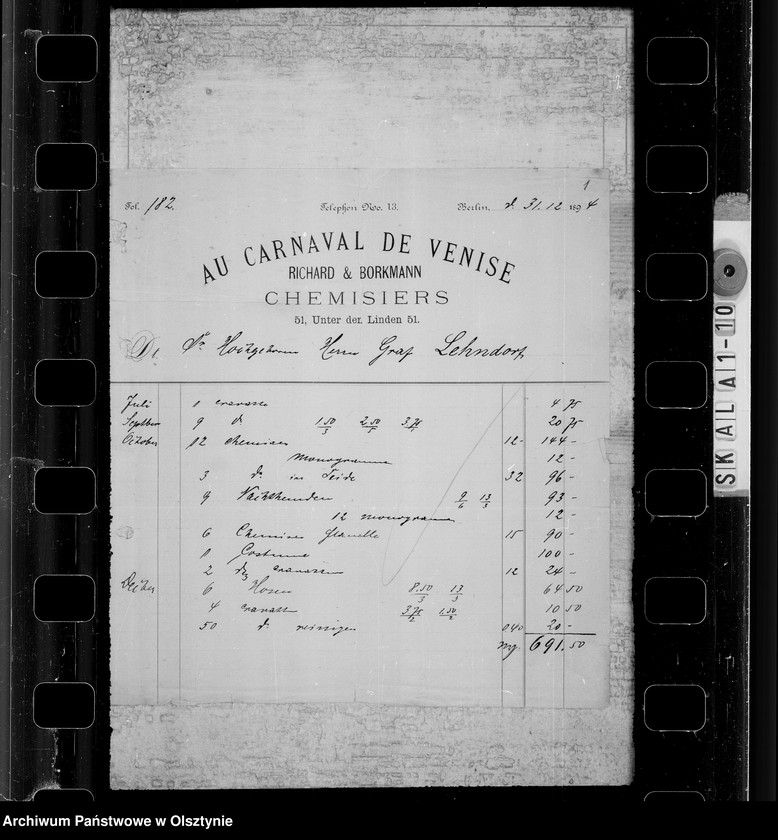 1
Fol. 182. Telephon No. 13. Berlin, d. 31.12 1894
AU CARNAVAL DE VENISE
RICHARD & BORKMANN
CHEMISIERS
51, Unter den Linden 51.
Sr. Hochgeboren Herrn Graf Lehndorf
Juli 1 cravatte 4 75
Septber 9 do 1.50/3 2.50/5 3.75/1 20 75
October 12 chemises 12- 144 -
monogramme 12 -
3 do. in Seide 32 96 -
9 Nachthemden 9/6 13/3 93 -
12 monogramme 12 -
6 Chemises flanelle 15 90 -
1 Costume 100 -
2 Dz cravatten 12 24 -
Decber 6 Hosen 8.50/3 13/3 64 50
4 cravatten 3.75/2 1.50/2 10 50
50 do. 0.40 20 -
691.50
SKALA 1-10
Archiwum Państwowe w Olsztynie